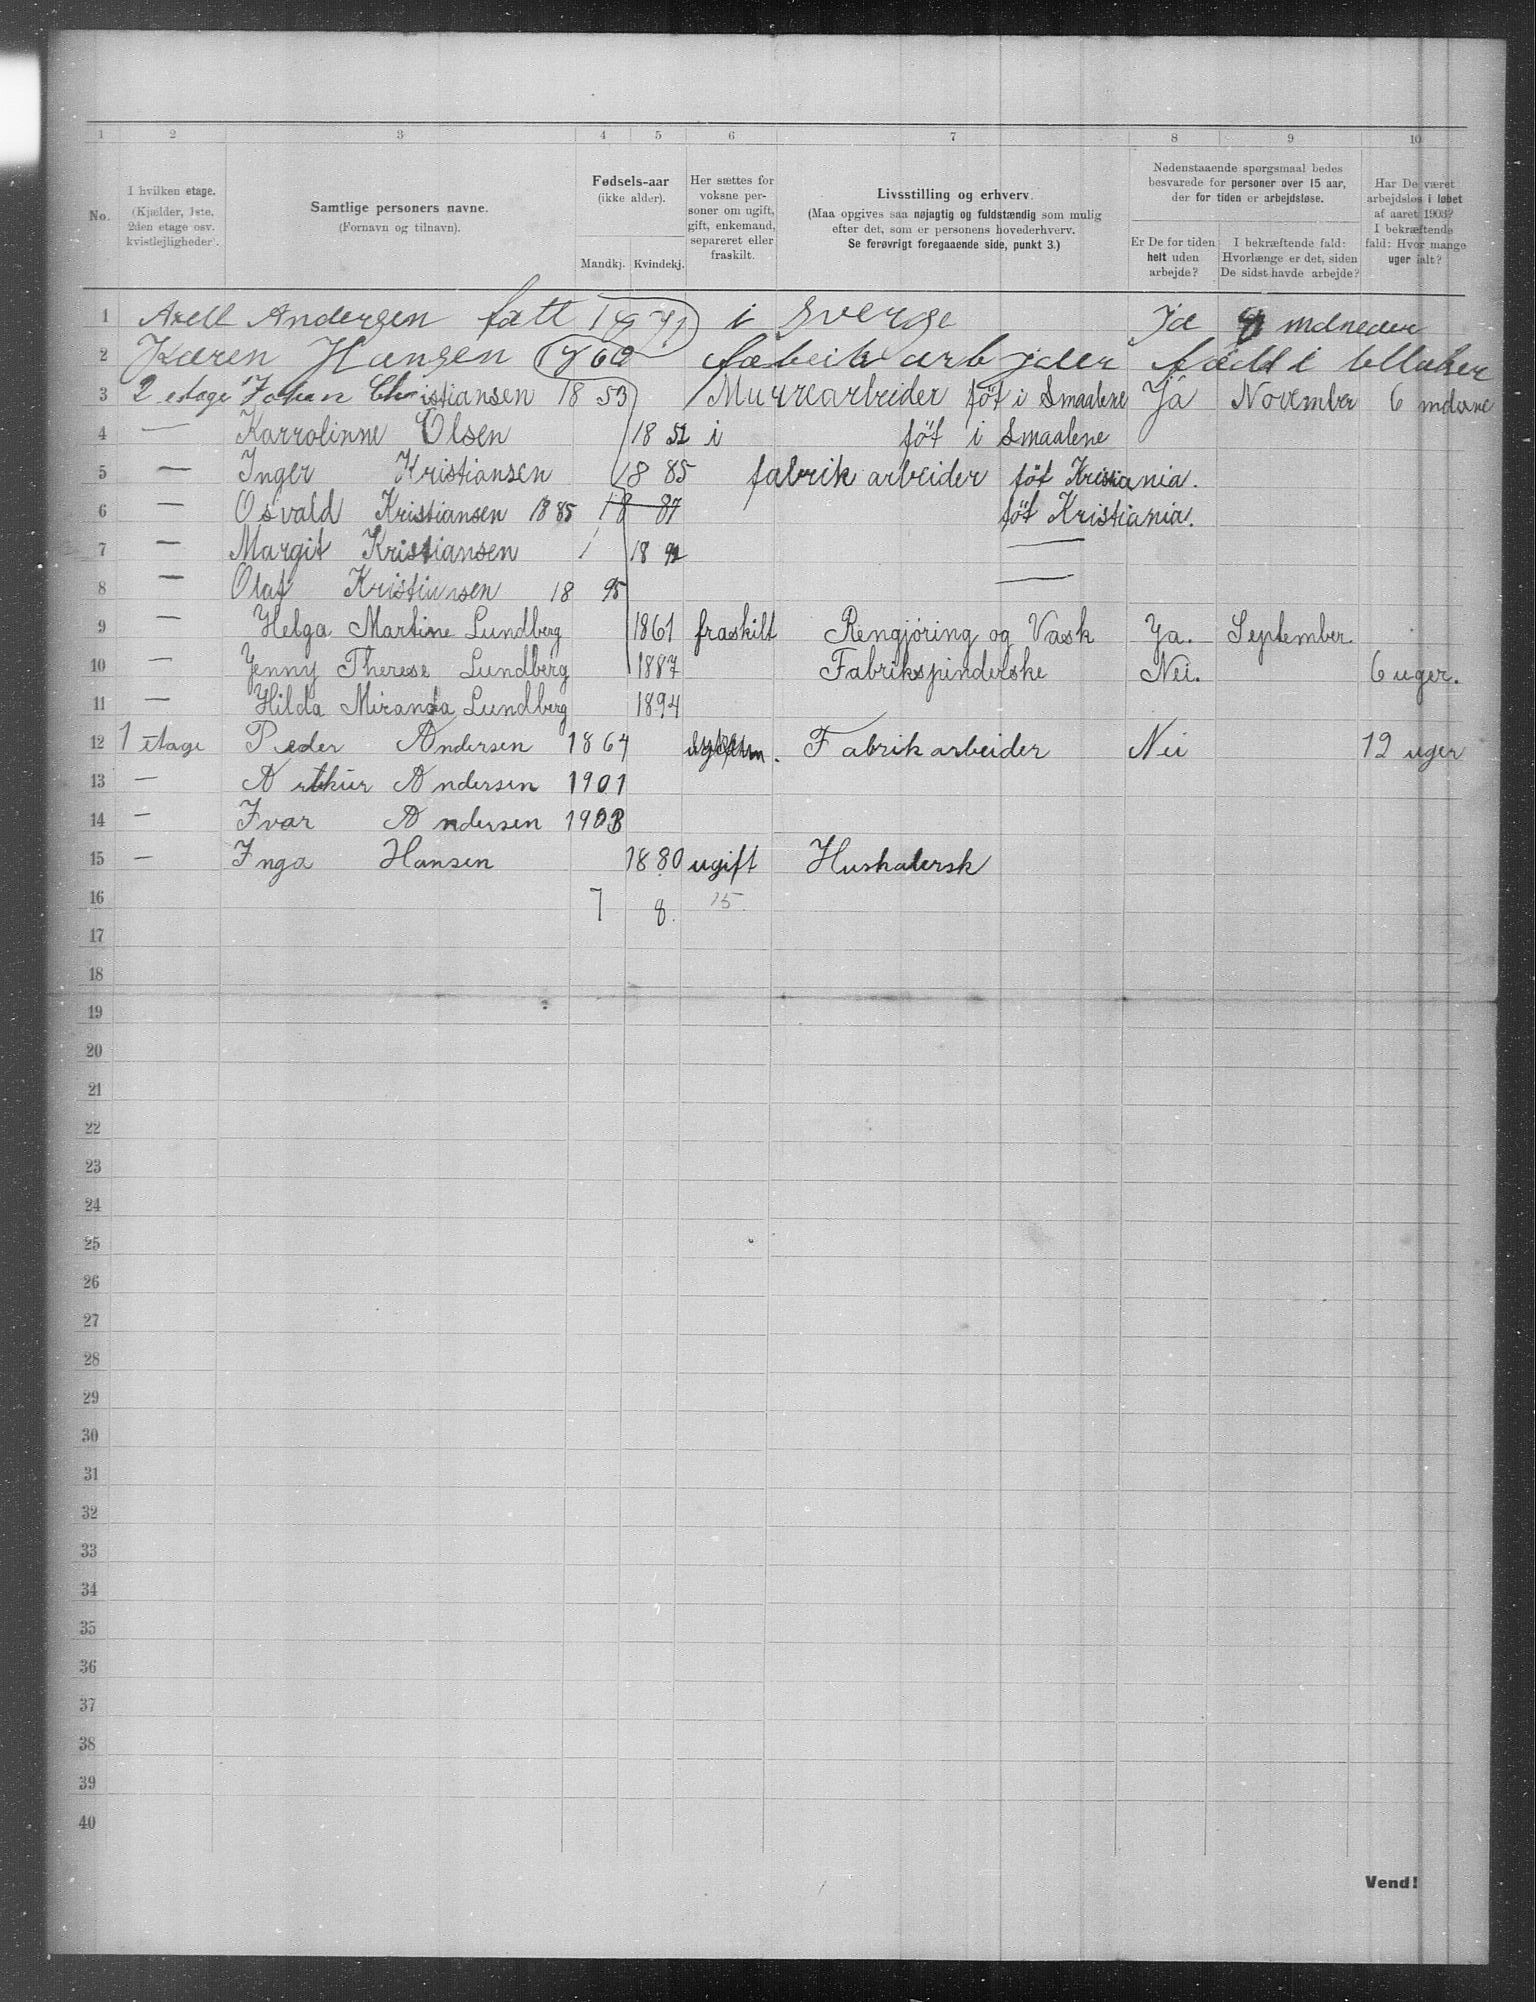 1 2 3 4 5 6 7 8 9 10
No.
I hvilken etage.
(Kjælder, 1ste,
2den etage osv.
kvistlejligheder).
Samtlige personers navne.
(Fornavn og tilnavn).
Fødsels-aar
(ikke alder).
Mandkj. Kvindekj.
Her sættes for
voksne per-
soner om ugift,
gift, enkemand,
separeret eller
fraskilt.
Livsstilling og erhverv.
(Maa opgives saa nøjagtig og fuldstændig som mulig
efter det, som er personens hovederhverv.
Se forøvrigt foregaaende side, punkt 3.)
Nedenstaaende spørgsmaal bedes
besvarede for personer over 15 aar,
der for tiden er arbejdsløse.
Er De for tiden
helt uden
arbejde?
I bekræftende fald:
Hvorlænge er det, siden
De sidst havde arbejde?
Har De været
arbejdsløs i løbet
af aaret 1903?
I bekræftende
fald: Hvor mange
uger ialt?
1 Axell Andersen i Sverge Ja mdneder
2 Karen Hansen 1860 fabrik arbjder født i
3 2 etage Johan Christiansen 18 53 Murrearbeider föt i Smaalene Ja November 6 mdene
4 — Karrolinne Olsen 18 52 i föt i Smaalene
5 — Inger Kristiansen 18 85 fabrik arbeider föt Kristiania.
6 — Osvald Kristiansen 1885 18 87 föt Kristiania.
7 — Margit Kristiansen 18 92 —
8 — Olaf Kristiansen 18 95 —
9 — Helga Martine Lundberg 1861 fraskilt Rengjøring og Vask Ja. September.
10 — Jenny Therese Lundberg 1887 Fabrikspinderske Nei. 6 uger.
11 — Hilda Miranda Lundberg 1894
12 1 etage Peder Andersen 1864 Fabrikarbeider Nei 12 uger
13 — Arthur Andersen 1901
14 — Ivar Andersen 1903
15 — Inga Hansen 1880 ugift Husholersk
16 7 8. 15.
17
18
19
20
21
22
23
24
25
26
27
28
29
30
31
32
33
34
35
36
37
38
39
40
Vend!